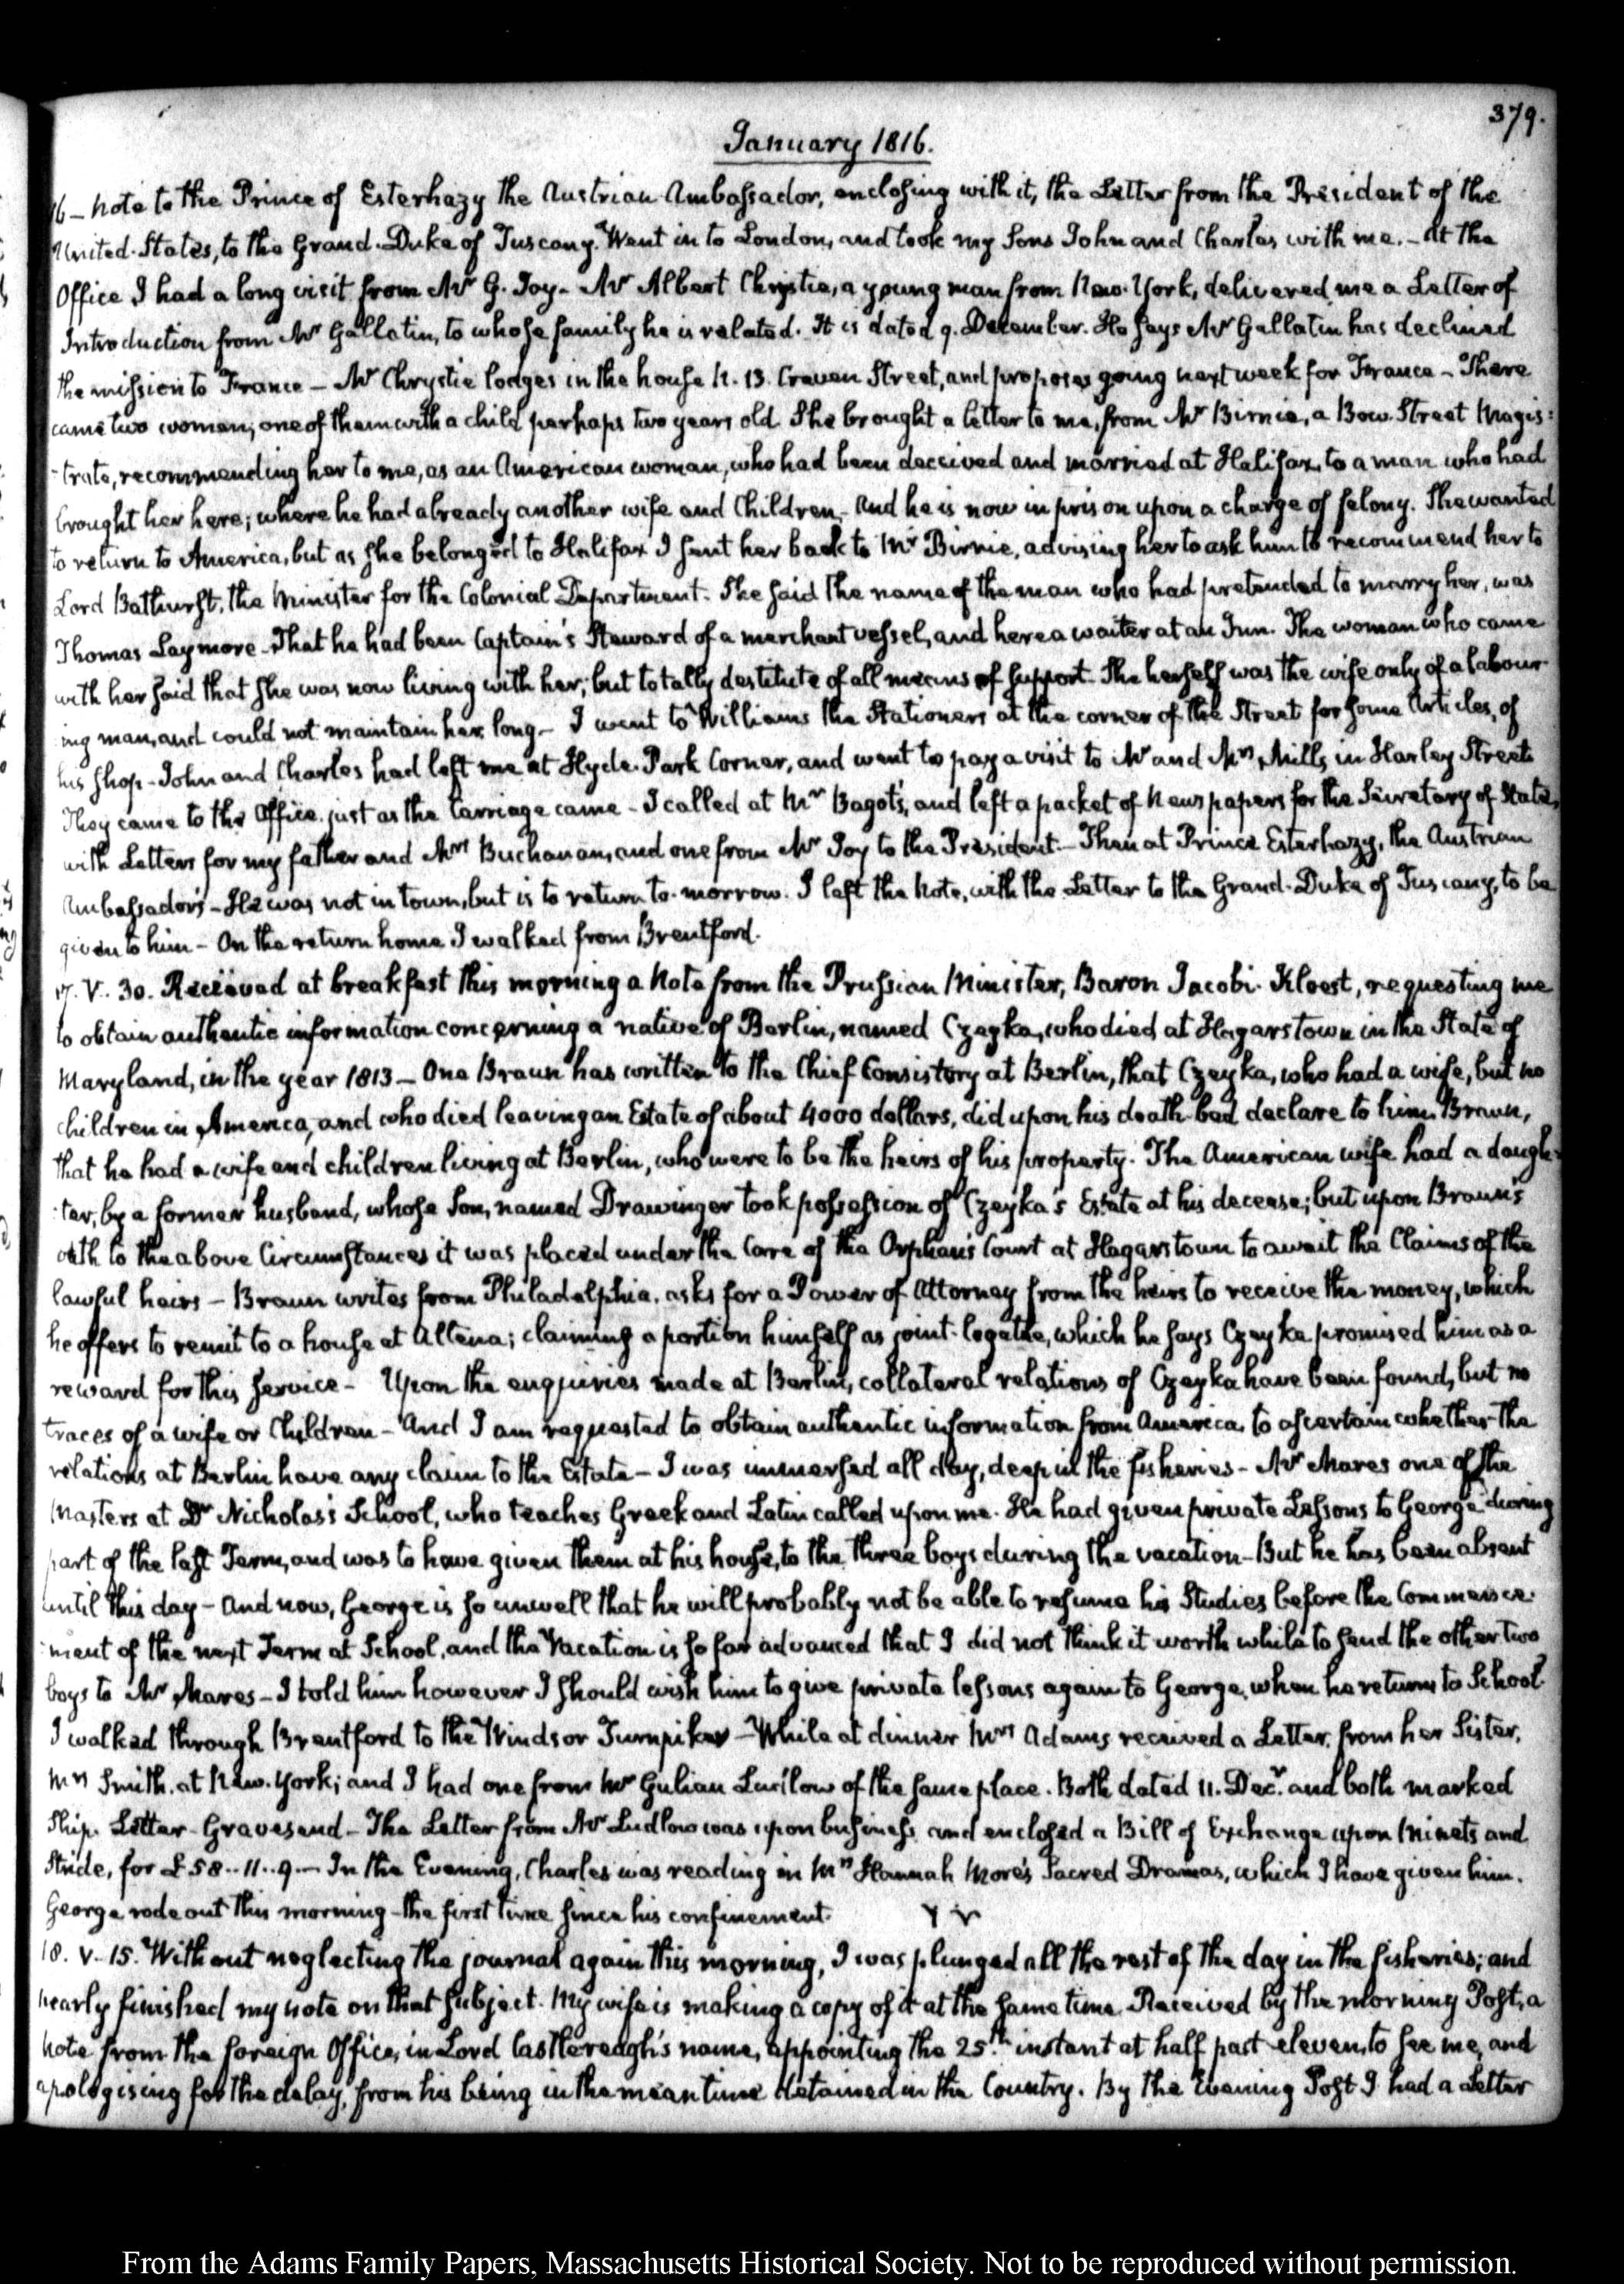 379.
January 1816.
16 — Note to the Prince of Esterhazy the Austrian Ambassador, enclosing with it, the Letter from the President of the
United States, to the Grand-Duke of Tuscany. Went in to London, and took my Sons John and Charles with me. — At the
Office I had a long visit from Mr G. Joy — Mr Albert Chrystie, a young man from New-York, delivered me a Letter of
Introduction from Mr Gallatin, to whose family he is related. It is dated 9. December. He says Mr Gallatin has declined
the mission to France — Mr Chrystie lodges in the house N. 13. Craven Street, and proposes going next week for France — There
came two women, one of them with a child perhaps two years old. She brought a letter to me, from Mr Birnie, a Bow-Street Magis:
:trate, recommending her to me, as an American woman, who had been deceived and married at Halifax, to a man who had
brought her here; where he had already another wife and Children — And he is now in prison upon a charge of felony. She wanted
to return to America, but as she belonged to Halifax I sent her back to Mr Birnie, advising her to ask him to recommend her to
Lord Bathurst, the Minister for the Colonial Department. She said the name of the man who had pretended to marry her, was
Thomas Laymore — That he had been Captain's Steward of a merchant vessel, and here a waiter at an Inn. The woman who came
with her said that she was now living with her; but totally destitute of all means of support — She herself was the wife only of a labour-
ing man, and could not maintain her long — I went to Williams the Stationers at the corner of the Street for some Articles, of
his shop — John and Charles had left me at Hyde-Park Corner, and went to pay a visit to Mr and Mrs Mills in Harley Street
They came to the Office, just as the Carriage came — I called at Mr Bagot's, and left a packet of Newspapers for the Secretary of State,
with Letters for my father and Mrs Buchanan, and one from Mr Joy to the President. — Then at Prince Esterhazy, the Austrian
Ambassador's — He was not in town, but is to return to-morrow. I left the Note, with the Letter to the Grand-Duke of Tuscany, to be
given to him — On the return home I walked from Brentford.
17. V. 30. Received at breakfast this morning a Note from the Prussian Minister, Baron Jacobi-Kloest, requesting me
to obtain authentic information concerning a native of Berlin, named Czeyka, who died at Hagarstown in the State of
Maryland, in the year 1813 — One Braun has written to the Chief Consistory at Berlin, that Czeyka, who had a wife, but no
children in America, and who died leaving an Estate of about 4000 dollars, did upon his death-bed declare to him Braun,
that he had a wife and children living at Berlin, who were to be the heirs of his property. The American wife had a daugh:
:ter, by a former husband, whose Son, named Drawinger took possession of Czeyka's Estate at his decease; but upon Braun's
oath to the above Circumstances it was placed under the Care of the Orphan's Court at Hagarstown to await the Claims of the
lawful heirs — Braun writes from Philadelphia, asks for a Power of Attorney from the heirs to receive the money, which
he offers to remit to a house at Altena; claiming a portion himself as joint-legatee, which he says Czeyka promised him as a
reward for this service — Upon the enquiries made at Berlin, collateral relations of Czeyka have been found, but no
traces of a wife or Children — And I am requested to obtain authentic information from America, to ascertain whether the
relations at Berlin have any claim to the Estate — I was immersed all day, deep in the fisheries — Mr Mares one of the
Masters at Dr Nicholas's School, who teaches Greek and Latin called upon me. He had given private Lessons to George during
part of the last Term, and was to have given them at his house, to the three boys during the vacation — But he has been absent
until this day — And now, George is so unwell that he will probably not be able to resume his Studies before the Commence:
:ment of the next Term at School, and the Vacation is so far advanced that I did not think it worth while to send the other two
boys to Mr Mares — I told him however I should wish him to give private lessons again to George, when he returns to School
I walked through Brentford to the Windsor Turnpike — While at dinner Mrs Adams received a Letter from her Sister,
Mrs Smith, at New-York; and I had one from Mr Gulian Ludlow of the same place. Both dated 11. Decr. and both marked
Ship-Letter — Gravesend — The Letter from Mr Ludlow was upon business and enclosed a Bill of Exchange upon Minets and
Stride, for £58..11..9. — In the Evening, Charles was reading in Mrs Hannah More's Sacred Dramas, which I have given him.
George rode out this morning — the first time since his confinement.
18. V. 15. Without neglecting the journal again this morning, I was plunged all the rest of the day in the fisheries; and
nearly finished my note on that subject. My wife is making a copy of it at the same time. Received by the morning Post, a
note from the foreign Office, in Lord Castlereagh's name, appointing the 25th instant at half past eleven, to see me, and
apologising for the delay, from his being in the mean time detained in the Country. By the Evening Post I had a Letter
From the Adams Family Papers, Massachusetts Historical Society. Not to be reproduced without permission.